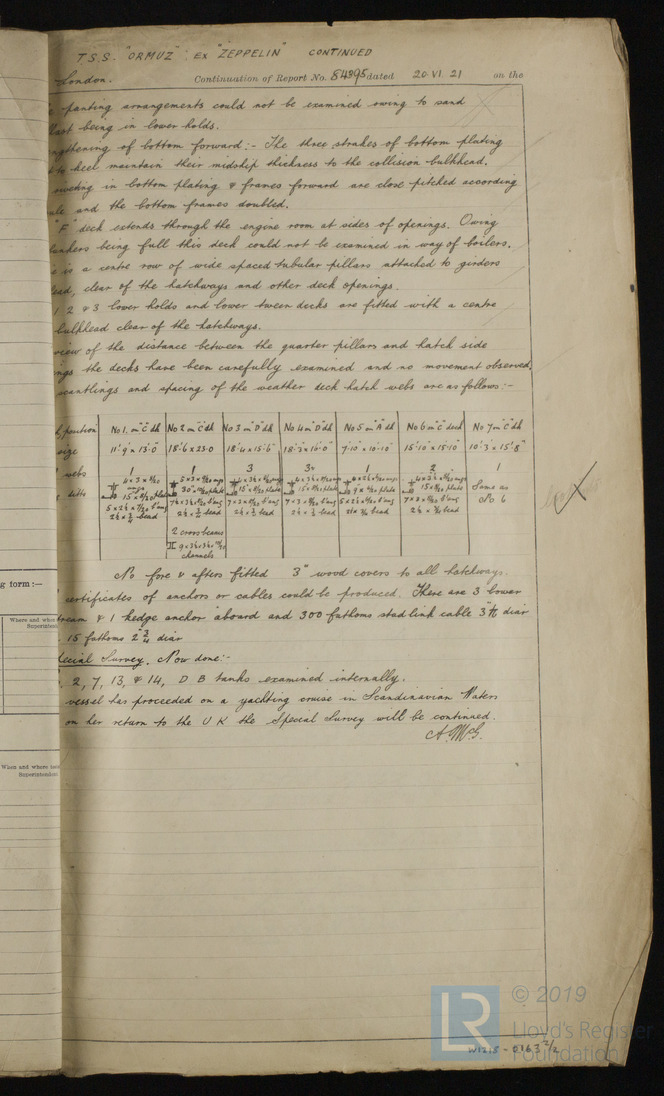 T.S.S. "ORMUZ" EX "ZEPPELIN" CONTINUED
London. Continuation of Report No. 84895 dated 20 VI. 21 on the
panting arrangements could not be examined owing to sand
last being in lower holds.
ngthening of bottom forward:- The three strakes of bottom plating
to keel maintain their midship thickness to the collision bulkhead.
in bottom plating & frames forward are close pitched according
and the bottom frames doubled.
"F" deck extends through the engine room at sides of openings. Owing
unkers being full this deck could not be examined in way of boilers.
e is a centre row of wide spaced tubular pillars attached to girders
ead, clear of the hatchways and other deck openings.
1 2 & 3 lower holds and lower tween decks are fitted with a centre
bulkhead clear of the hatchways.
view of the distance between the quarter pillars and hatch side
ngs the decks have been carefully examined and no movement observed,
scantlings and spacing of the weather deck hatch webs are as follows:-
position No 1. in "C" dk No 2 in "C" dk No 3 in "D" dk No 4 in "D" dk No 5 in "A" dk No 6 in "C" deck No 7 in "C" dk
size 11'.9" x 13.0" 18'.6 x 23.0 18'.4 x 15'.6" 18'.3 x 10'.0" 7'.10" x 10'.10" 15'.10" x 15'.10" 10'.3 x 15'.8"
webs 1 1 3 3 1 2 1
Same as
No 6
2 cross beams
channels
No fore & afters fitted 3" wood covers to all hatchways.
certificates of anchors or cables could be produced. There are 3 lower
tream & 1 kedge anchor aboard and 300 fathoms stud link cable diar
15 fathoms 2 3/4 diar
pecial Survey. Now done:-
2, 7, 13, & 14, D B tanks examined internally.
vessel has proceeded on a yachting cruise in Scandinavian Waters
on her return to the U K the Special Survey will be continued.
A. McG.
g form:—
Where and when
Superintend
When and where
Superintended
LR
© 2019
Lloyd's Register
Foundation
W1215 - 0163 2/2